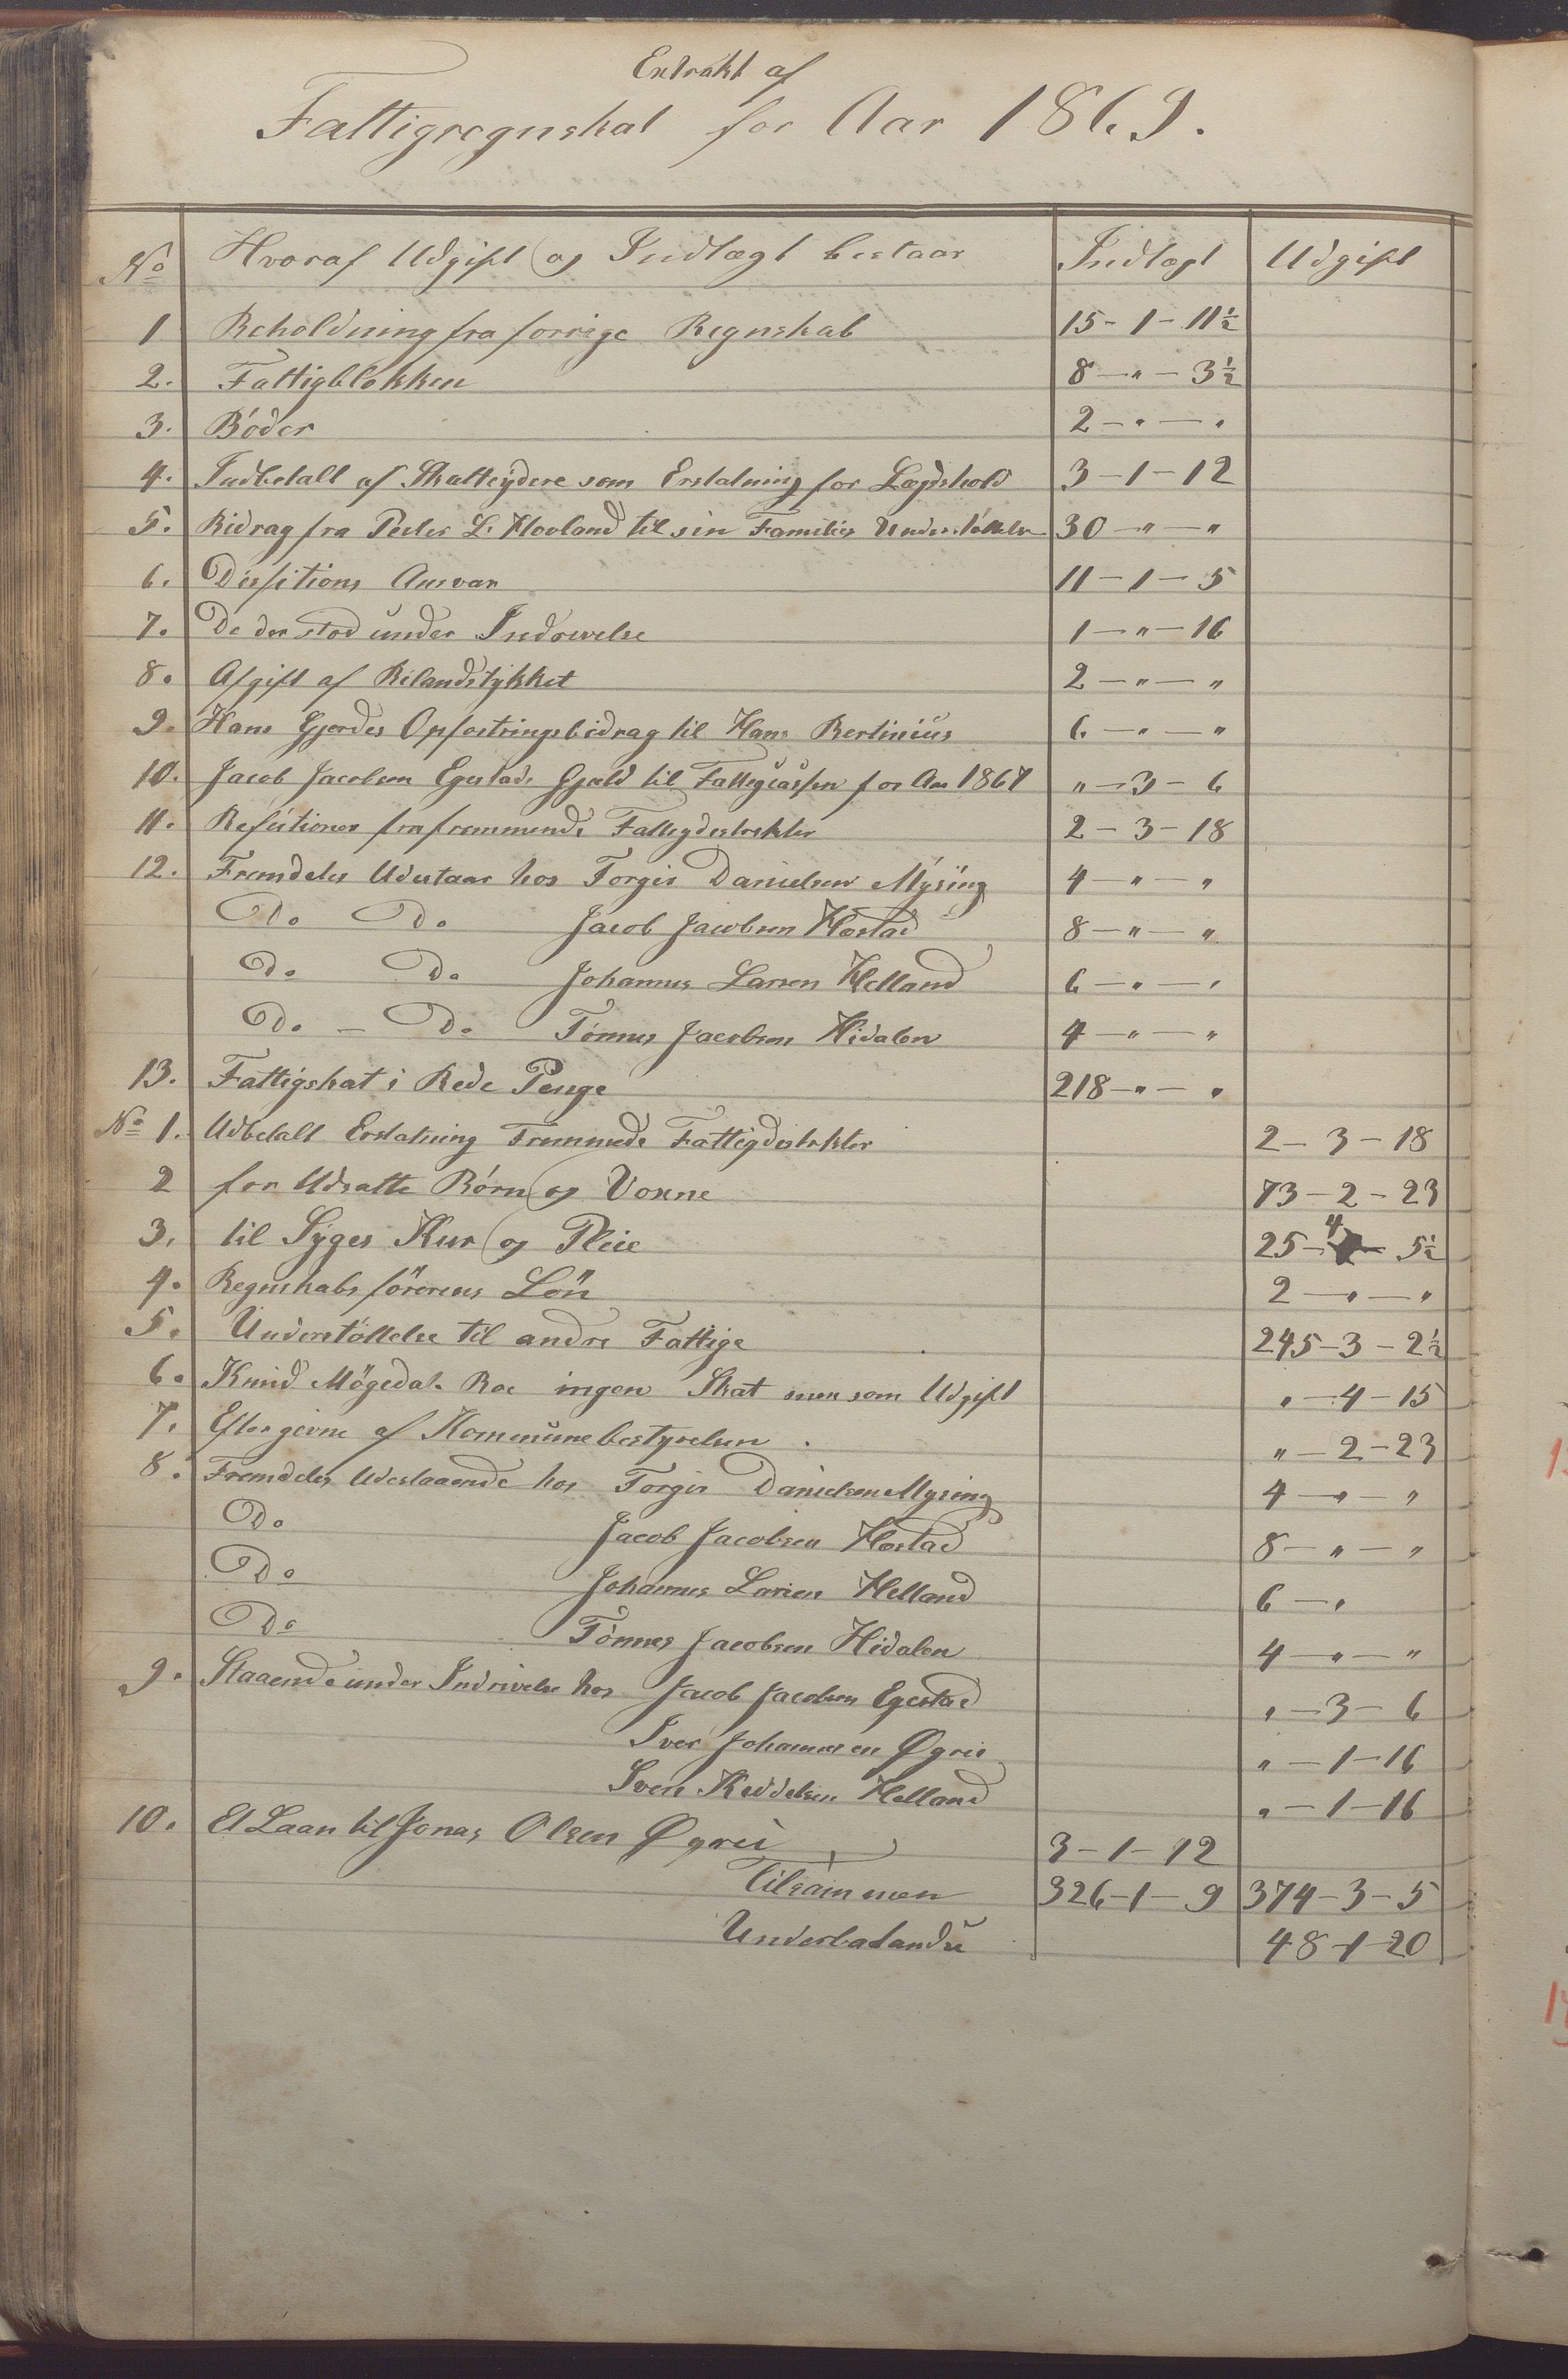 Extrakt af
Fattigregnskab for Aar 1869.
No Hvoraf Udgift og Indtægt bestaar Indtægt Udgift
1 Beholdning fra forrige Regnskab 15-1-11½
2. Fattigblokken 8-"-3½
3. Böder 2-"-"
4. Indbetalt af Skatteydere som Erstatning for Lægdshold 3-1-12
5. Bidrag fra Peder L. Hovland til sin Families Understöttelse 30-"-"
6. Ansvar 11-1-5
7. De der stod under Indrivelse 1-"-16
8. Afgift af Bilandstykket 2-"-"
9. Hans Gjerdes Opfostringsbidrag til Hans Bertinius 6-"-"
10. Jacob Jacobsen Egestads Gjæld til Fattigcassen for Aar 1867 "-3-6
11. Refusioner fra fremmende Fattigdistrikter 2-3-18
12. Fremdeles Udestaar hos Torgis Danielsen Mysing 4-"-"
Do Do Jacob Jacobsen Hæstad 8-"-"
Do Do Johannes Larsen Helland 6-"-"
Do - Do Tönnes Jacobsen Hidalen 4-"-"
13. Fattigskat i Rede Penge 218-"-"
No 1. Udbetalt Erstatning Fremmede Fattigdistrikter 2-3-18
2 for Udsatte Börn og Voxne 73-2-23
3. til Syges Kur og Pleie 25-4-5½
4. Regnskabsförerens Lön 2-"-"
5. Understöttelse til andre Fattige 245-3-2½
6. Knud Mögedal Roe ingen Skat men som Udgift "-4-15
7. Eftergivne af Kommunebestyrelsen. "-2-23
8. Fremdeles Udestaaende hos Torgis Danielsen Mysing 4-"-"
Do Jacob Jacobsen Hæstad 8-"-"
Do Johannes Larsen Helland 6-"
Do Tönnes Jacobsen Hidalen 4-"-"
9. Staaende under Indrivelse hos Jacob Jacobsen Egestad "-3-6
Iver Johannesen Øgrei "-1-16
Sven Keddelsen Helland "-1-16
10. Et Laan til Jonas Olsen Øgrei 3-1-12
Tilsammen 326-1-9 374-3-5
Underbalandse 48-1-20